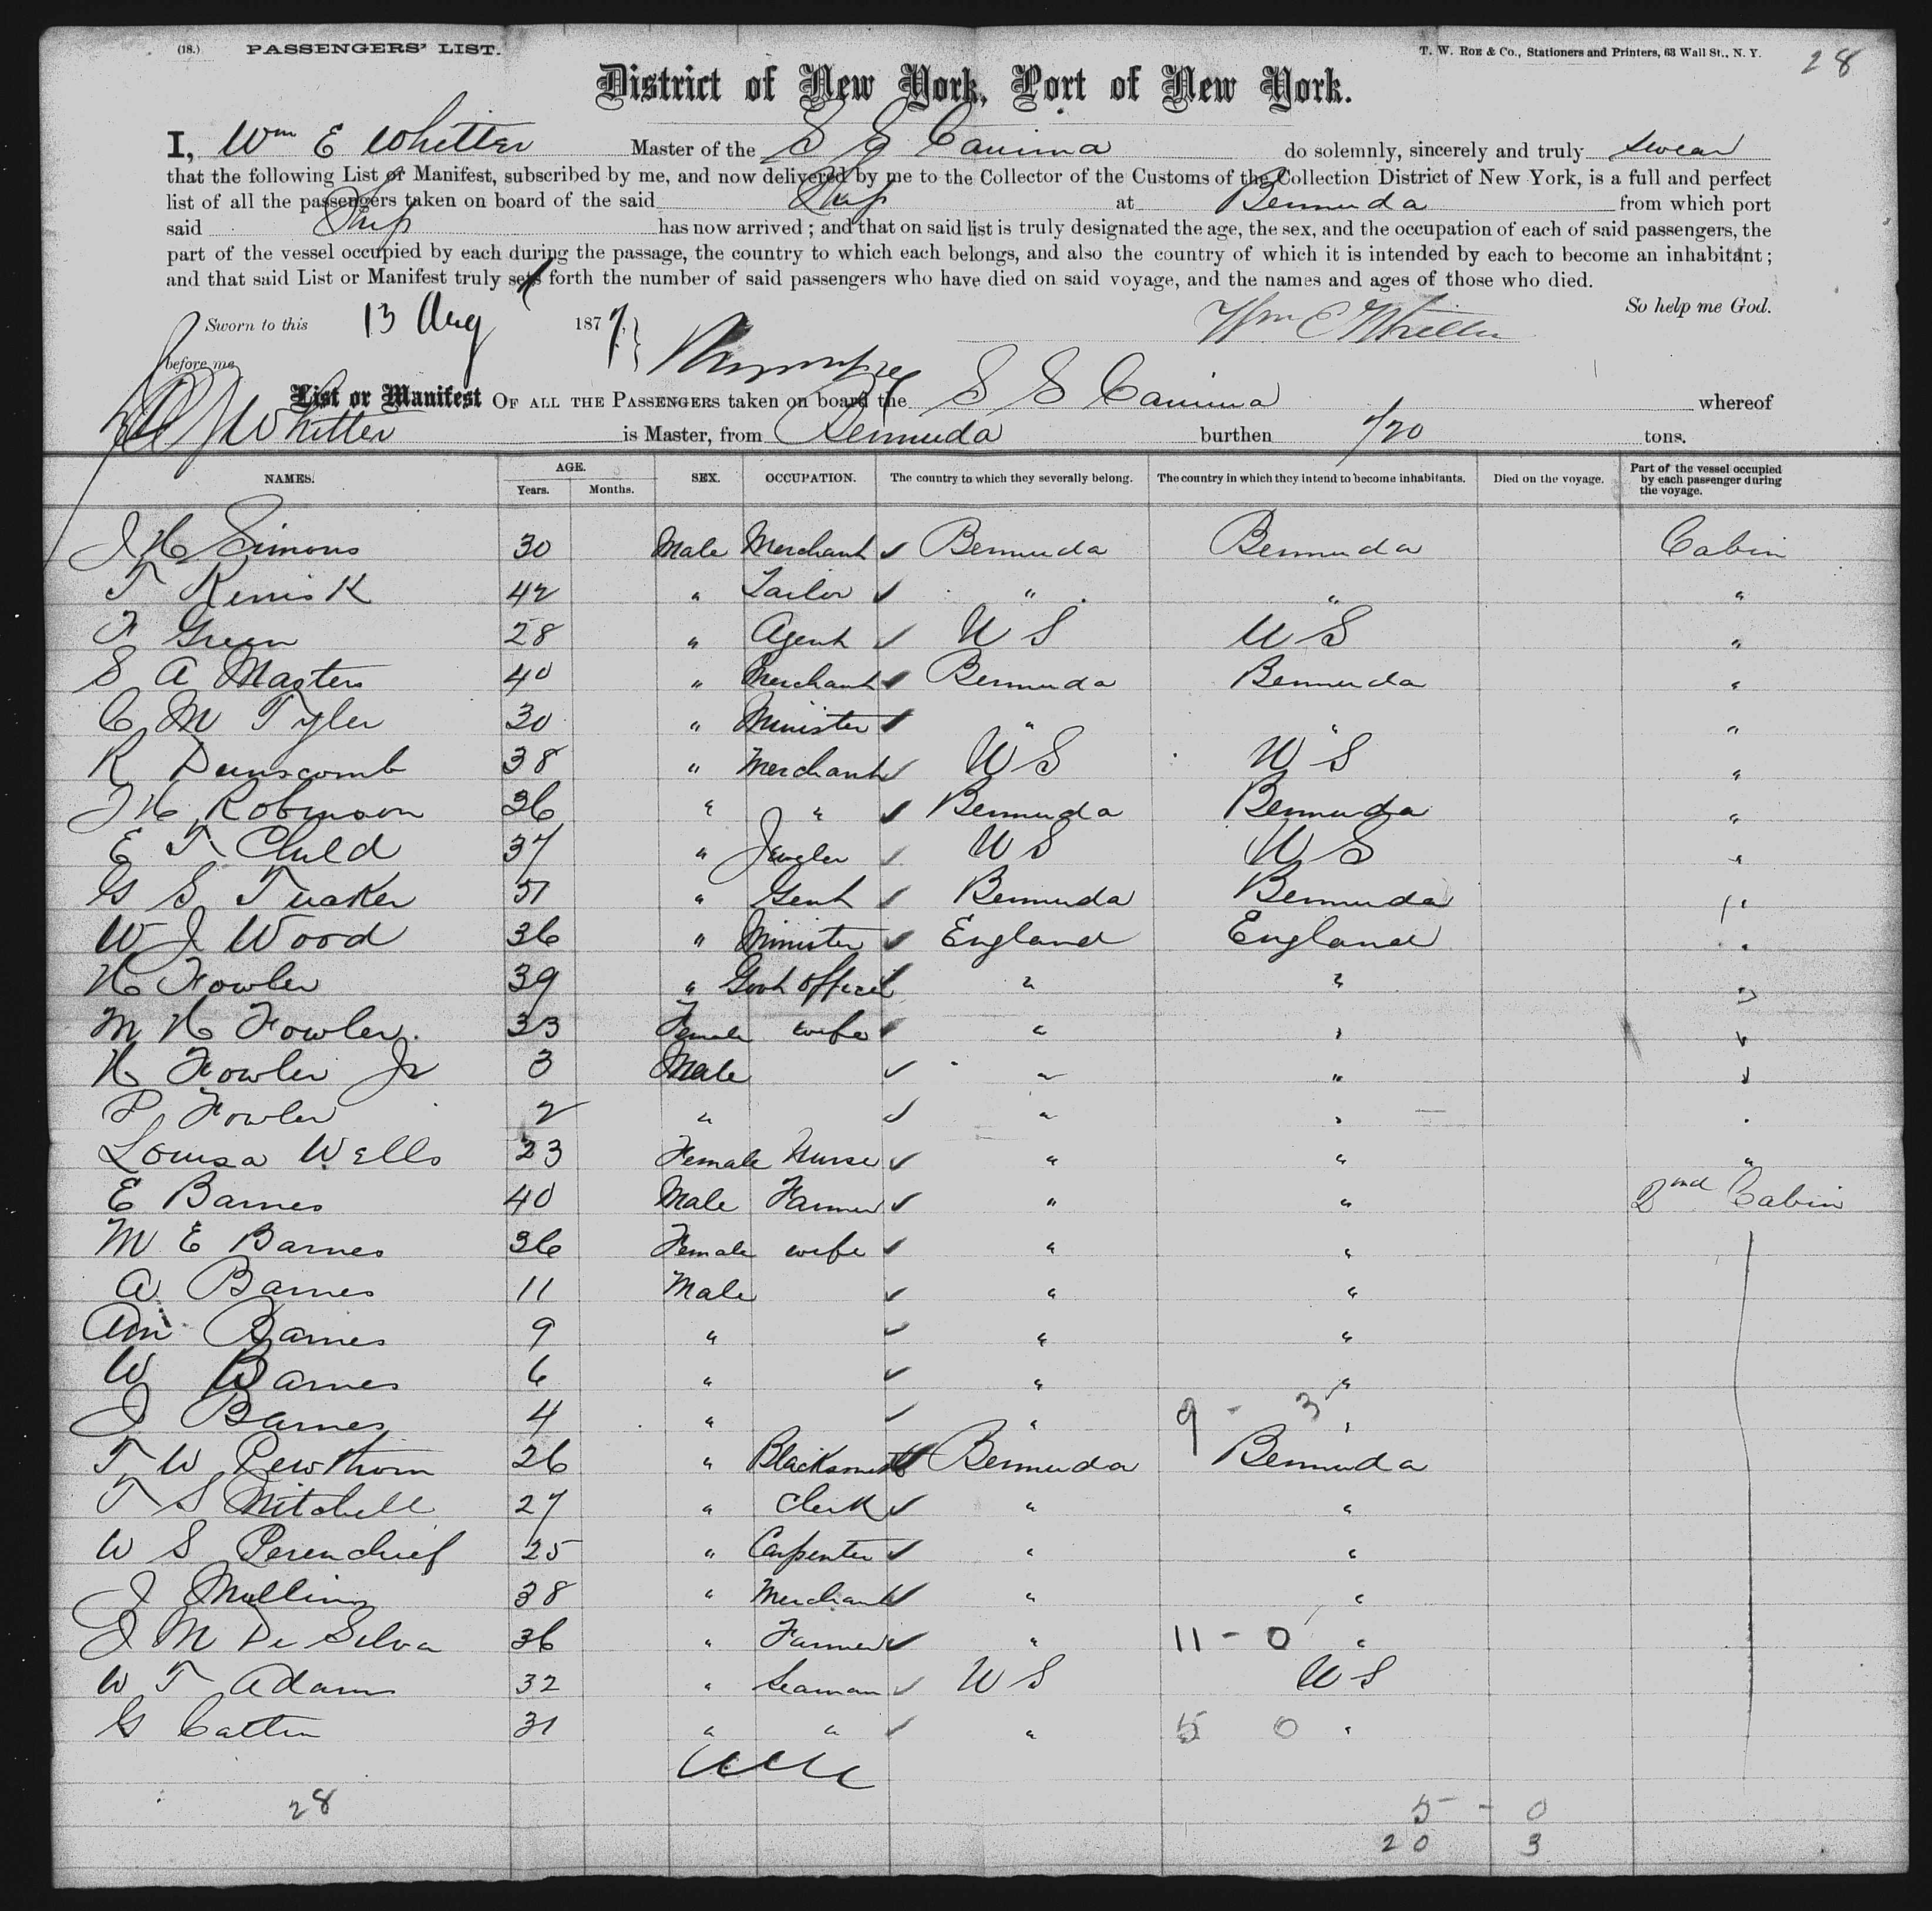 (18.) PASSENGERS' LIST. T. W. ROE & Co., Stationers and Printers, 63 Wall St., N. Y. 28
District of New York, Port of New York.
I, Wm E Whitter Master of the S S Canima do solemnly, sincerely and truly swear
that the following List or Manifest, subscribed by me, and now delivered by me to the Collector of the Customs of the Collection District of New York, is a full and perfect
list of all the passengers taken on board of the said Ship at Bermuda from which port
said Ship has now arrived; and that on said list is truly designated the age, the sex, and the occupation of each of said passengers, the
part of the vessel occupied by each during the passage, the country to which each belongs, and also the country of which it is intended by each to become an inhabitant;
and that said List or Manifest truly sets forth the number of said passengers who have died on said voyage, and the names and ages of those who died.
So help me God.
Sworn to this 13 Aug 1877. Wm E Whitter
before me
List or Manifest OF ALL THE PASSENGERS taken on board the S S Canima whereof
Whitter is Master, from Bermuda burthen 720 tons.
NAMES. AGE. Years. Months. SEX. OCCUPATION. The country to which they severally belong. The country in which they intend to become inhabitants. Died on the voyage. Part of the vessel occupied by each passenger during the voyage.
J H Simons 30 Male Merchant ✓ Bermuda Bermuda Cabin
T Kenisk 42 " Tailor ✓ " " "
F Green 28 " Agent ✓ U S U S "
S A Masters 40 " Merchant ✓ Bermuda Bermuda "
C M Tyler 30 " Minister ✓ " " "
R Dunscomb 38 " Merchant ✓ U S U S "
J H Robinson 36 " " ✓ Bermuda Bermuda "
E T Child 37 " Jeweler ✓ U S U S "
G S Tucker 51 " Gent ✓ Bermuda Bermuda "
W J Wood 36 " Minister ✓ England England "
H Fowler 39 " Govt Official " " "
M H Fowler. 33 Female wife ✓ " " "
H Fowler Jr 3 Male ✓ " " "
P Fowler 2 " ✓ " " "
Louisa Wells 23 Female Nurse ✓ " " "
E Barnes 40 Male Farmer ✓ " " 2nd Cabin
M E Barnes 36 Female wife ✓ " "
A Barnes 11 Male ✓ " "
Am Barnes 9 " ✓ " "
W Barnes 6 " ✓ " "
J Barnes 4 " ✓ " 9 - 3 "
T W Pewthorn 26 " Blacksmith ✓ Bermuda Bermuda
T S Mitchell 27 " Clerk ✓ " "
W S Perenchief 25 " Carpenter ✓ " "
J Mullin 38 " Merchant ✓ " "
J M De Silva 36 " Farmer ✓ " 11 - 0 "
W T Adams 32 " Seaman ✓ U S U S
G Catten 31 " " ✓ " 5 0 "
28 5 - 0
20 3